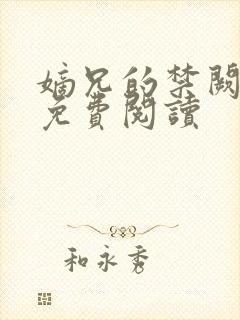 嫡兄的禁闕
免費閱讀
和永秀